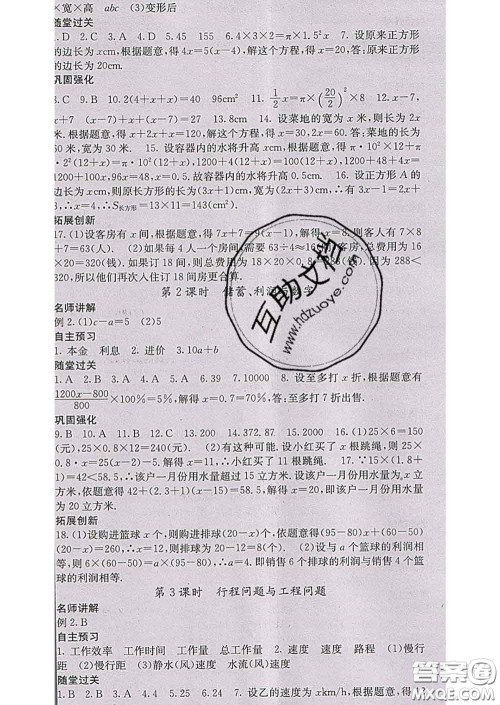 ×宽×高　abc　(3)变形后
随堂过关
1. D　2. C　3. A　4. D　5. 45　155　6. 4×3×2=πx²　7. 设原来正方形
的边长为xcm,根据题意,得4x=5(x-4),解这个方程,得x=20,答:原来正方形
的边长为20cm.
巩固强化
8. C　9. B　10. 2(4+x+x)=40　96cm²　11. ½x=π×(20/2)²×8　12. x-7,
x+7　(x-7)+x+(x+7)　13. 58　14. 设菜地的宽为x米,则长为2x
米.根据题意,得x+2x+x=120,解这个方程,得x=30,2x=60.答:菜地的长
为60米,宽为30米.　15. 设容器内的水将升高xcm,根据题意,得π·10²×12+π
·2²(12+x)=π·10²(12+x),1200+4(12+x)=100(12+x),1200+48+4x=
1200+100x,96x=48,x=0.5.故容器内的水将升高0.5cm.　16. 设正方形A的
边长为xcm,则原长方形的长为(3x+1)cm,宽为(3x-1)cm;∴有3x-1=2x+
3,∴x=4,∴S长方形=13×11=143(cm²).
拓展创新
17. (1)设客房有x间,根据题意,得7x+7=9(x-1),解得x=8.则客人有7×8
+7=63(人).　(2)如果每4人一个房间,需要63÷4≈16间客房,总费用为16
×20=320(钱).如果订18间,其中四人一起住,则总费用为18×20×0.8=288(钱).因为288<
320,所以他们再次入住订18间房更合算.
第2课时　储蓄、利润与数字
名师讲解
例2. (1)c-a=5　(2)5
自主预习
1. 本金　利息　2. 进价　3. 10a+b
随堂过关
1. A　2. B　3. A　4. A　5. A　6. 39　7. 10000　8. 设至多打x折,根据题意有
(1200x-800)/800×100%=5%,解得x=0.7=70%.答:至多打7折出售.
巩固强化
9. B　10. A　11. B　12. C　13. 200　14. 372.87　15. 2000　16. (1)25×6=150
(元),25×0.8×12=240(元).　(2)有这种可能.设小红买了x根跳绳,则25×
0.8·x=25(x-2)-5,解得x=11.∴小红买了11根跳绳.　17. ∵2×15=30<
58.5,∴该户一月份用水量超过15立方米.设该户一月份用水量为x立
方米,依题意得42+(2.3+1)(x-15)=58.5,解得x=20,∴该户一月份用水量
为20立方米.
拓展创新
18. (1)设购进篮球x个,则购进排球(20-x)个,依题意得(95-80)x+(50-40)
(20-x)=260,∴x=12,则购进排球20-12=8(个).　(2)设与a个篮球的利润相
等,则6×(50-40)=a×(95-80),∴a=4.即销售6个排球的利润与销售4个篮
球的利润相等.
第3课时　行程问题与工程问题
名师讲解
例2. B
自主预习
1. 工作效率　工作时间　工作量　总工作量　2. 速度　速度　路程　(1)慢行
距　(2)慢行距　(3)静水(风)速度　水流(风)速度
随堂过关
1. B　2. B　3. A　4. A　5. 25　6. 24　7. 设乙的速度为xkm/h,根据题意,得
互助文档
www.hdzuoye.com
答案圈
MXQE.COM